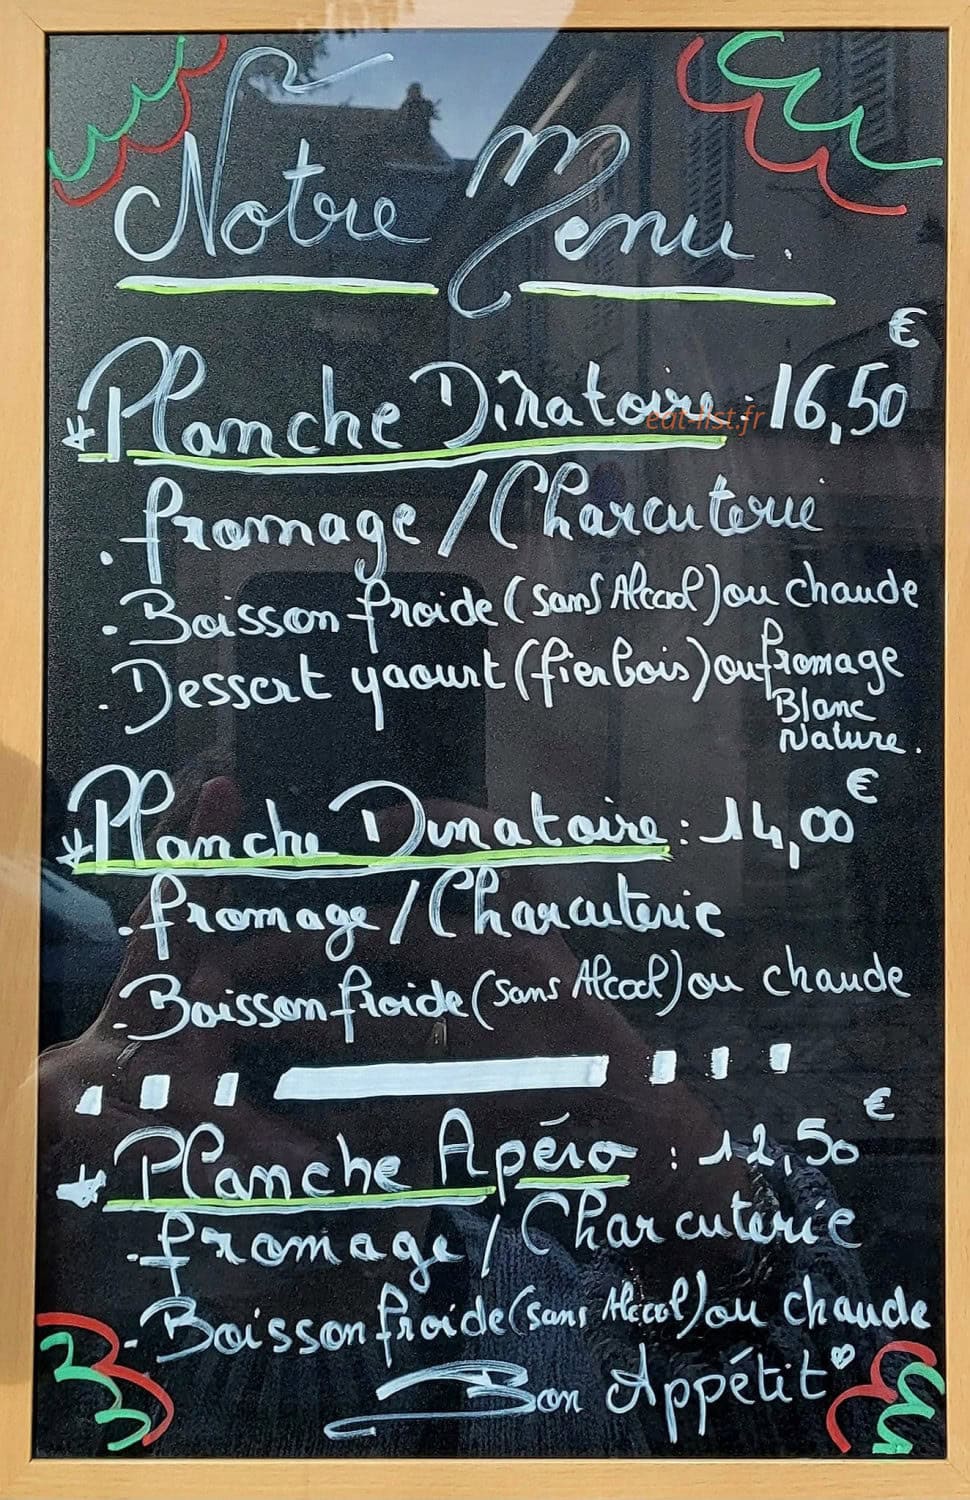 Notre Menu.
€
* Planche Dînatoire : 16,50
eat-list.fr
. fromage / Charcuterie
. Boisson froide (sans Alcool) ou chaude
. Dessert yaourt (fierbois) ou fromage
Blanc
Nature.
€
* Planche Dinatoire : 14,00
. fromage / Charcuterie
. Boisson froide (sans Alcool) ou chaude
€
* Planche Apéro : 12,50
. fromage / Charcuterie
. Boisson froide (sans Alcool) ou chaude
Bon Appétit